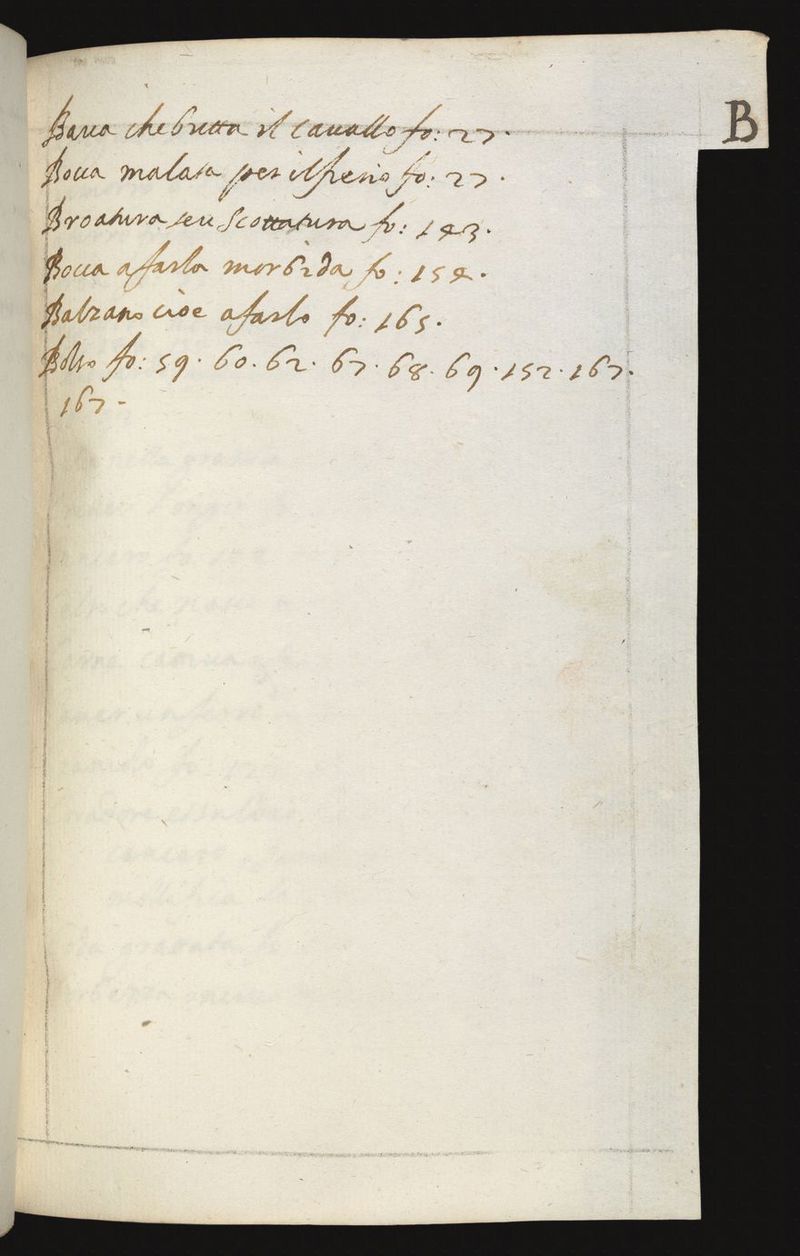 B
Baua che butta il cauallo fo: 27.
Bocca malata per il freno fo: 27.
Broatura seu Scottatura fo: 143.
Bocca a farla morbida fo: 154.
Balzano cioe a farlo fo: 165.
Bolso fo: 59. 60. 62. 67. 68. 69. 152. 167.
167.